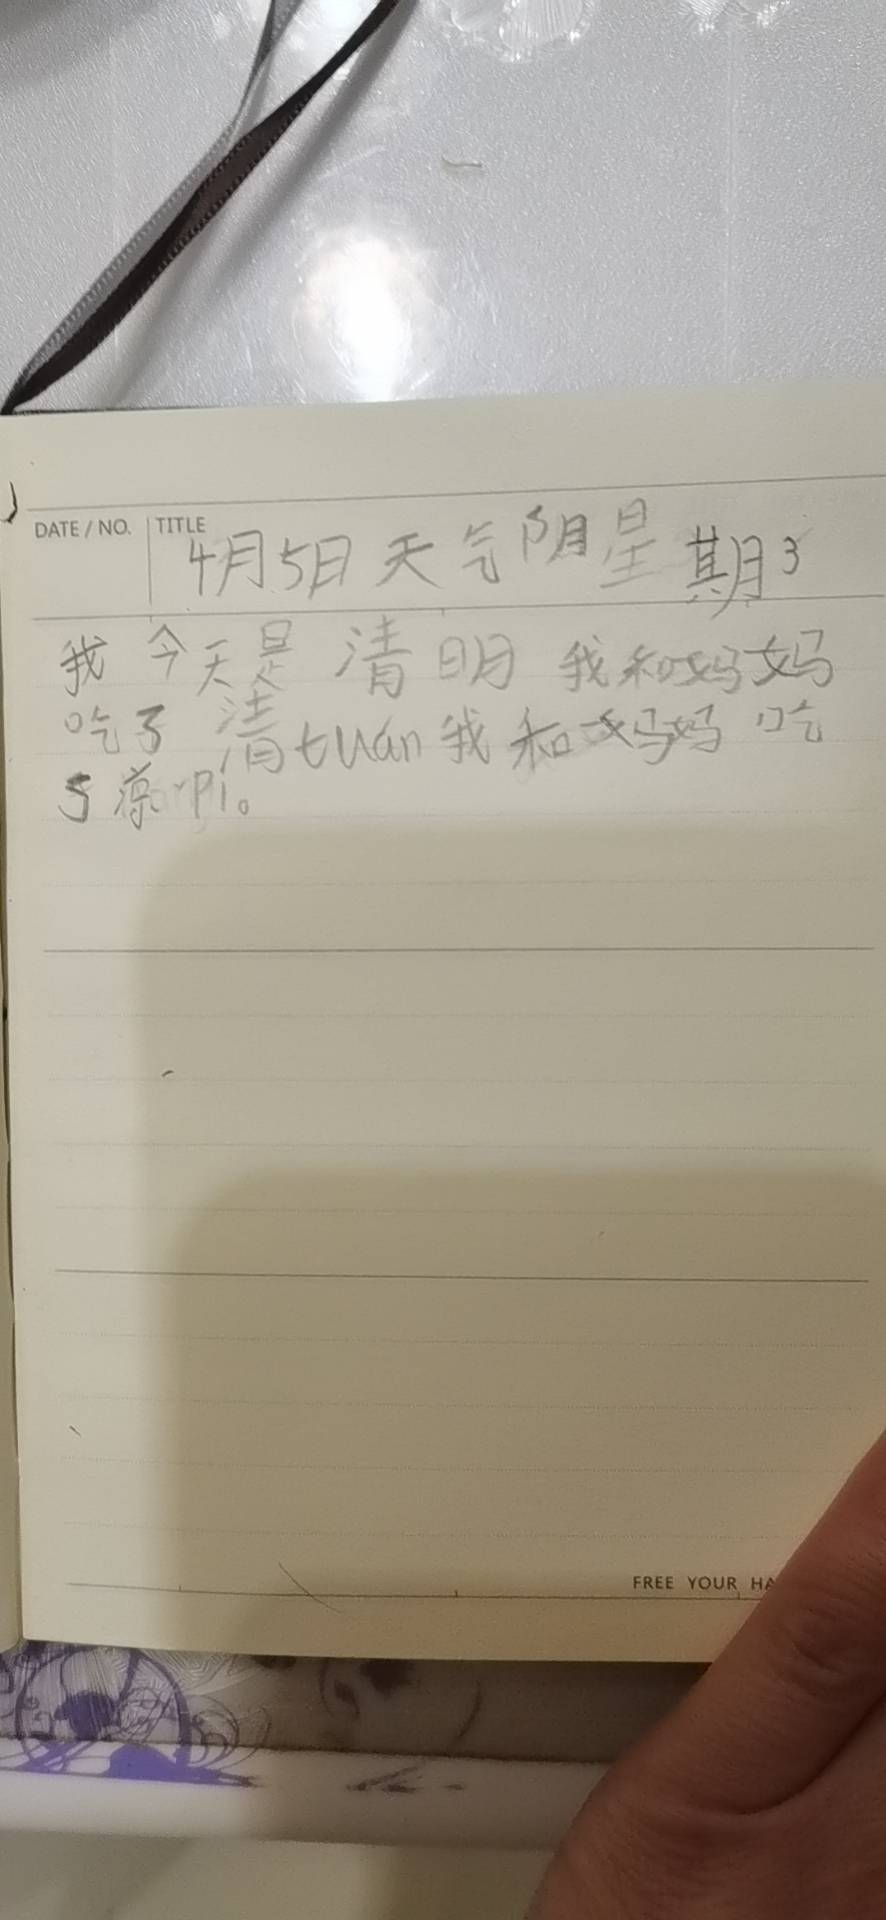 DATE / NO. TITLE
4月5日天气阴星期3
我今天是清明我和妈妈
吃了清tuán我和妈妈吃
了凉pí。
FREE YOUR